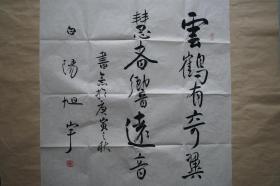 雲鶴有奇翼
慧響遠音
書於庚寅秋
白陽旭宇